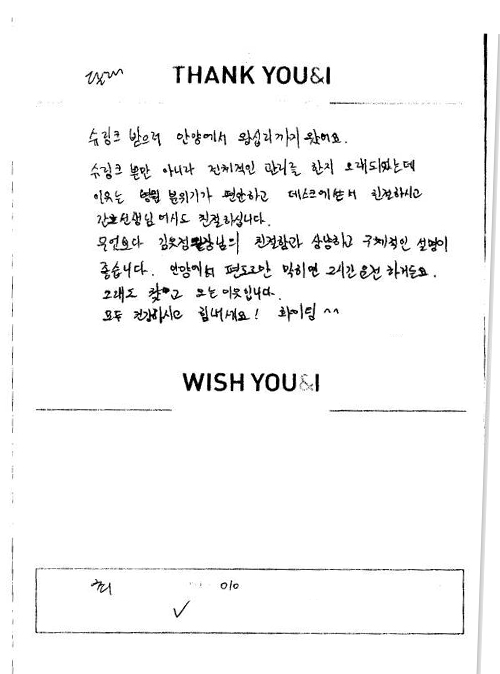 THANK YOU&I
슈링크 받으러 안양에서 왕십리까지 왔어요.
슈링크 뿐만 아니라 전체적인 관리를 한지 오래되었는데
이유는 병원 분위기가 편안하고 데스크에서부터 친절하시고
간호선생님께서도 친절하십니다.
무엇보다 친절함과 상냥하고 구체적인 설명이
좋습니다. 안양에서 편도로만 막히면 2시간 운전 하거든요.
그래도 찾고 오는 이유입니다.
모두 건강하시고 힘내세요! 화이팅 ^^
WISH YOU&I
010